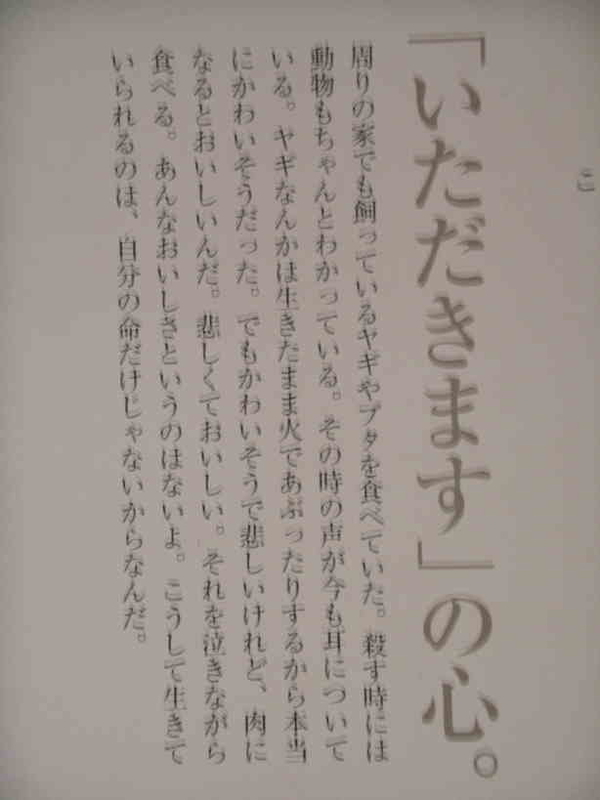 こ
「いただきます」の心。
周りの家でも飼っているヤギやブタを食べていた。殺す時には
動物もちゃんとわかっている。その時の声が今も耳について
いる。ヤギなんかは生きたまま火であぶったりするから本当
にかわいそうだった。でもかわいそうで悲しいけれど、肉に
なるとおいしいんだ。悲しくておいしい。それを泣きながら
食べる。あんなおいしさというのはないよ。こうして生きて
いられるのは、自分の命だけじゃないからなんだ。